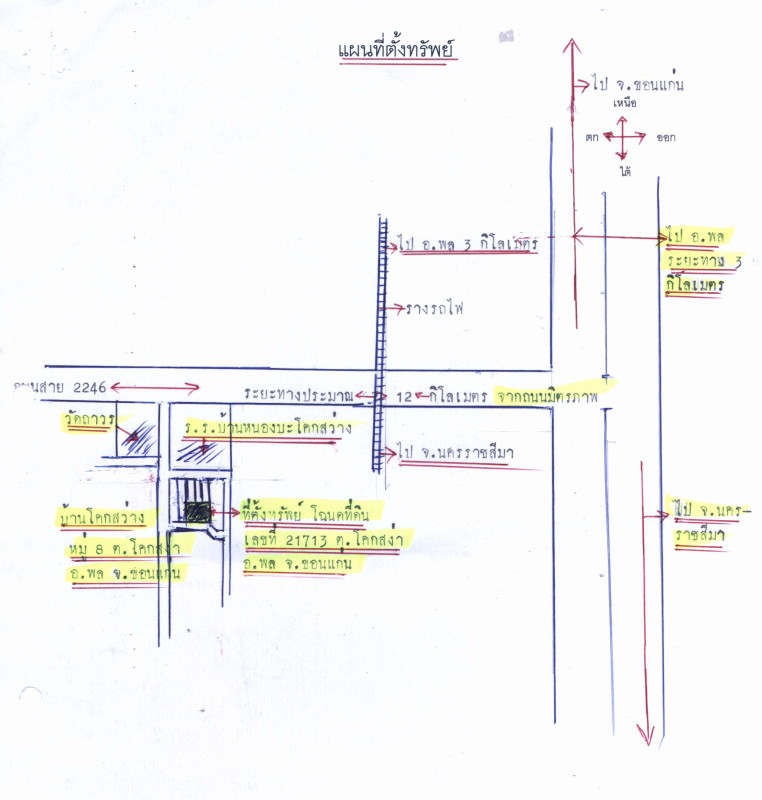 แผนที่ตั้งทรัพย์
ไป จ.ขอนแก่น
เหนือ
ตก
ออก
ใต้
ไป อ.พล 3 กิโลเมตร
ไป อ.พล
ระยะทาง 3
กิโลเมตร
รางรถไฟ
ถนนสาย 2246
ระยะทางประมาณ 12 กิโลเมตร จากถนนมิตรภาพ
วัดถาวร
ร.ร.บ้านหนองบะโคกสว่าง
ไป จ.นครราชสีมา
บ้านโคกสว่าง
หมู่ 8 ต.โคกสง่า
อ.พล จ.ขอนแก่น
ที่ตั้งทรัพย์ โฉนดที่ดิน
เลขที่ 21713 ต.โคกสง่า
อ.พล จ.ขอนแก่น
ไป จ.นคร-
ราชสีมา